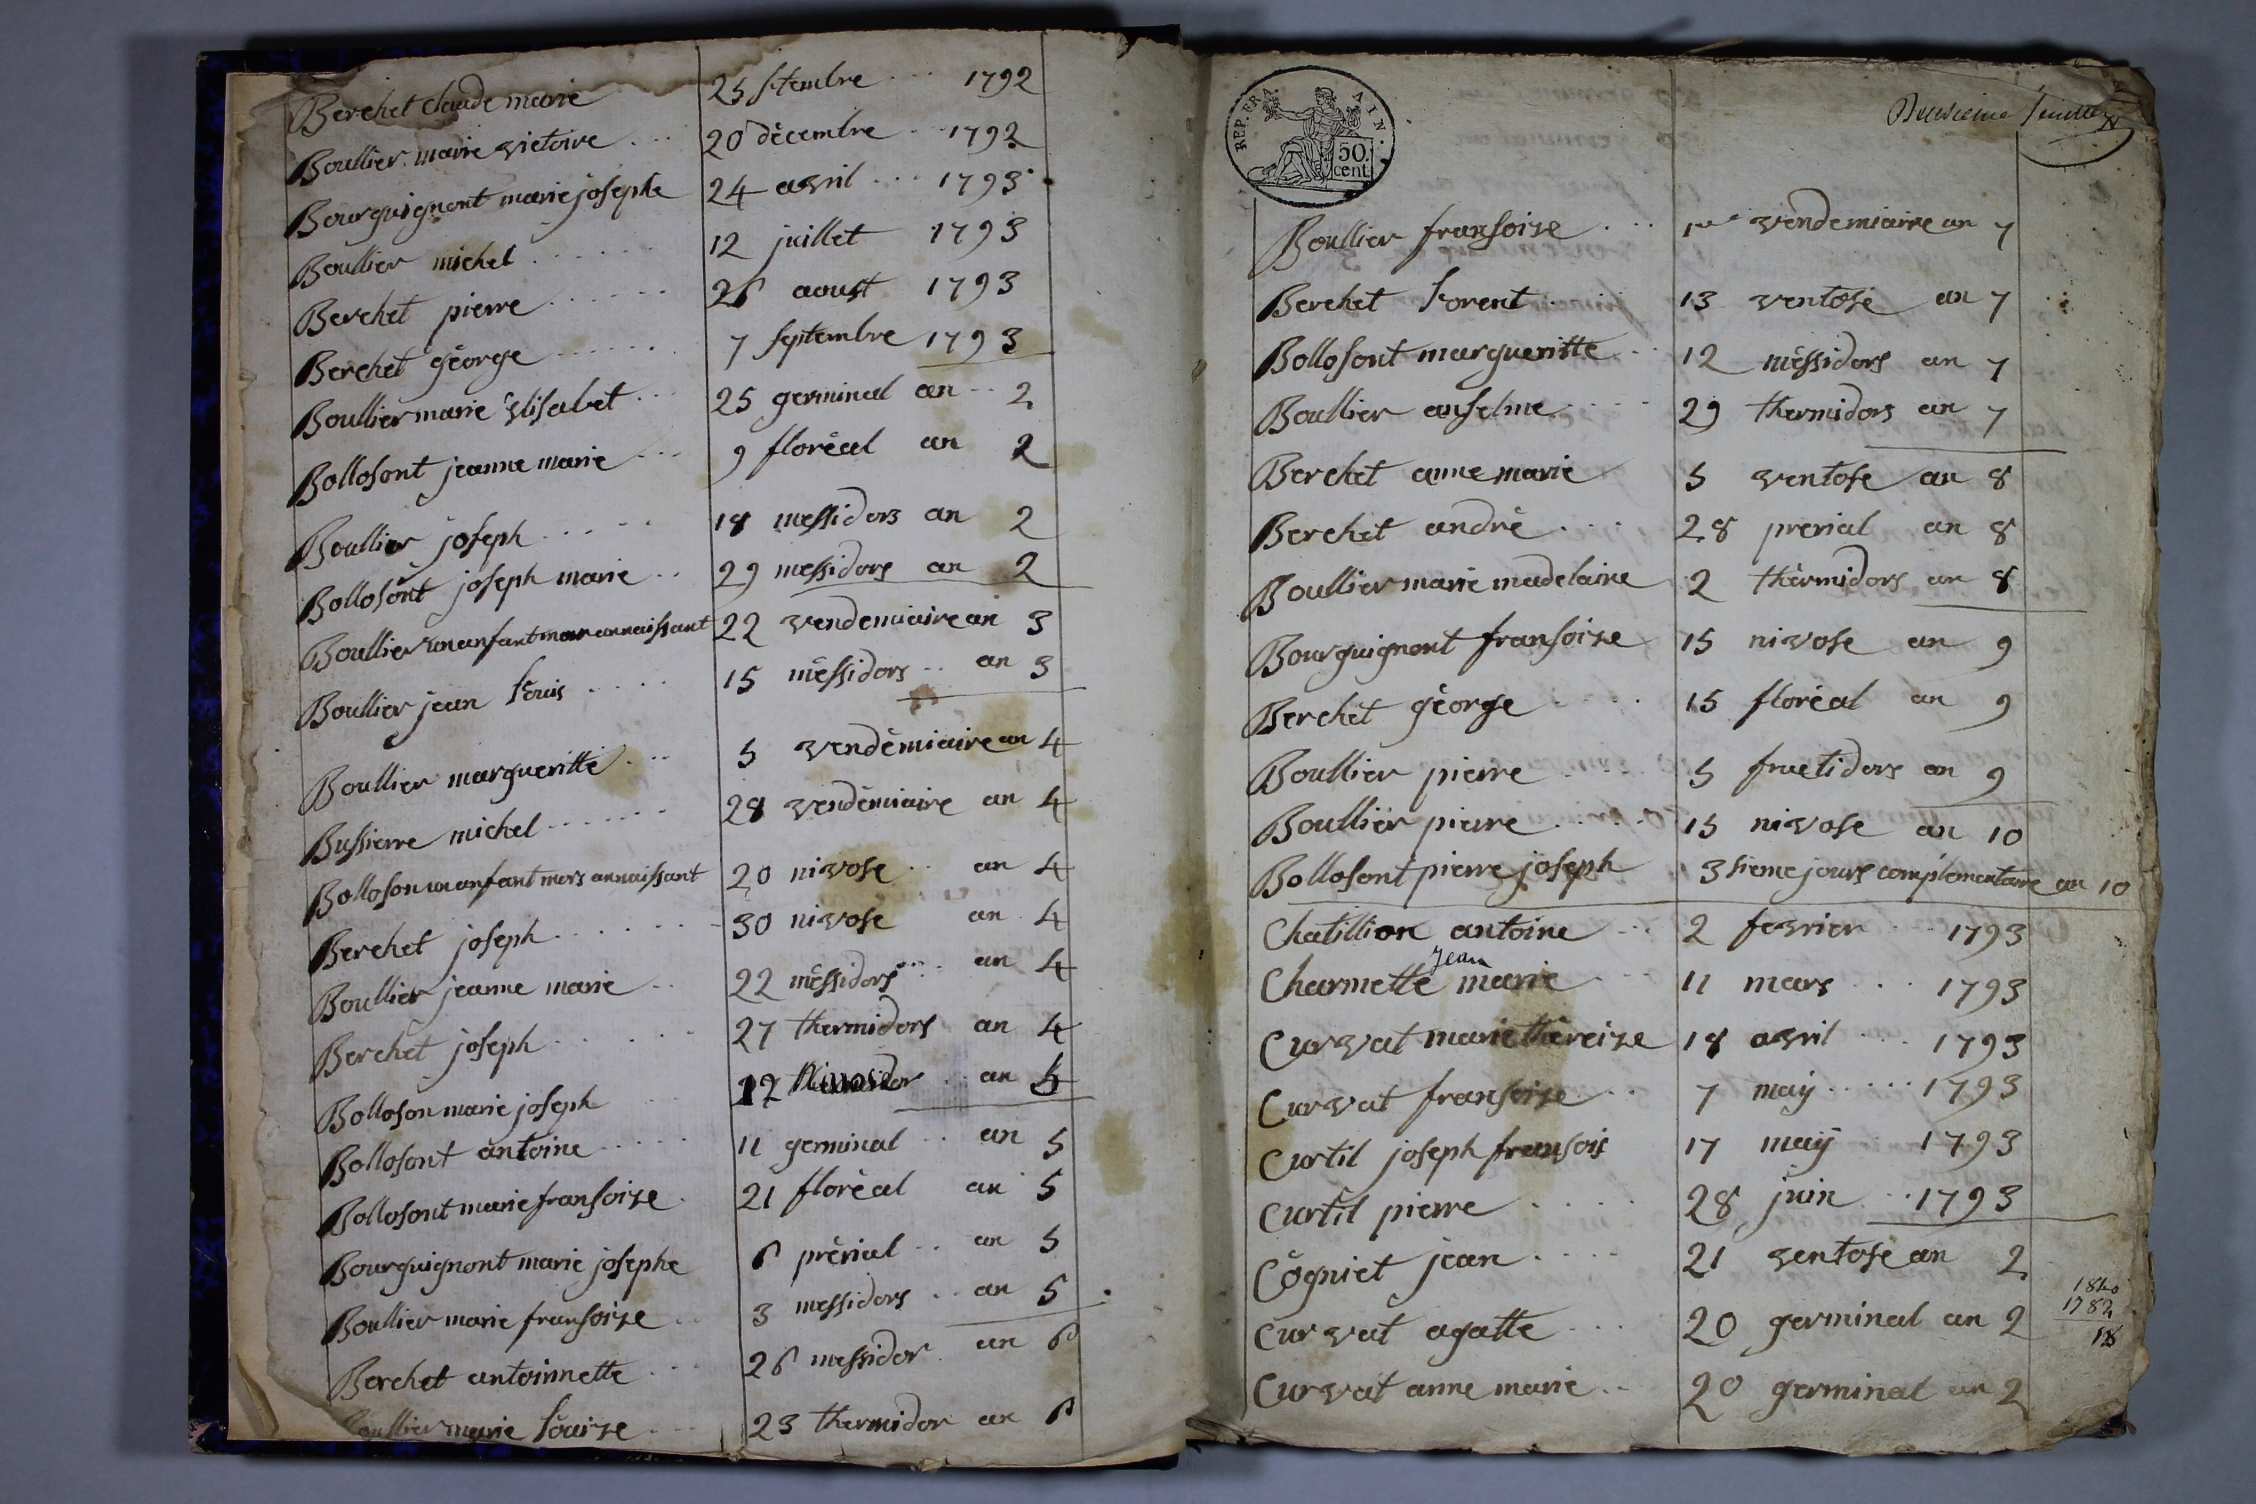 Berchet claude marie 25 stembre 1792
Boullier marie victoire 20 décembre 1792
Bourguignont marie josephe 24 avril 1793
Boullier michel 12 juillet 1793
Berchet pierre 26 aoust 1793
Berchet géorge 7 septembre 1793
Boullier marie Elisabet 25 germinal an 2
Bollosont jeanne marie 9 floréal an 2
Boullier joseph 18 messidors an 2
Bollosont joseph marie 29 messidors an 2
Boullier un anfant mors annaissant 22 vendemiaire an 3
Boullier jean Louis 15 méssidors an 3
Boullier margueritte 5 vendémiaire an 4
Bussierre michel 28 vendémiaire an 4
Bolloson un anfant mors annaissant 20 nivose an 4
Berchet joseph 30 nivose an 4
Boullier jeanne marie 22 méssidors an 4
Berchet joseph 27 thermidors an 4
Bolloson marie joseph 12 an 5
Bollosont antoine 11 germinal an 5
Bollosont marie fransoize 21 floréal an 5
Bourguignont marie josephe 6 prérial an 5
Boullier marie fransoize 3 messidors an 5
Berchet antoinnette 26 messidor an 6
Boullier marie Louize 23 thermidor an 6
REP. FRA. AIN.
50.
cent.
Deuxieme feuille
Boullier fransoize 1er vendemiaire an 7
Berchet Lorent 13 ventose an 7
Bollosont margueritte 12 méssidors an 7
Boullier anselme 29 thermidors an 7
Berchet anne marie 5 ventose an 8
Berchet andré 28 prerial an 8
Boullier marie madelaine 2 thérmidors an 8
Bourguignont fransoize 15 nivose an 9
Berchet géorge 15 floréal an 9
Boullier pierre 5 fructidors an 9
Boullier pierre 15 nivose an 10
Bollosont pierre joseph 3sieme jours complémentaire an 10
Chatillion antoine 2 fevrier 1793
jean
Charmette marie 11 mars 1793
Curvat marie théreize 18 avril 1793
Curvat fransoize 7 may 1793
Curtil joseph fransois 17 may 1793
Curtil pierre 28 juin 1793
Cogniet jean 21 ventose an 2
Curvat agatte 20 germinal an 2
Curvat anne marie 20 germinal an 2
1840
1782
18